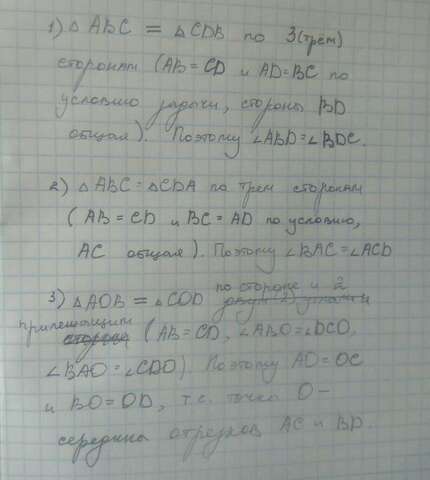 1) △ ABC = △CDB по 3(трём)
сторонам (AB = CD и AD=BC по
условию задачи, стороны BD
общая). Поэтому ∠ABD=∠BDC.
2) △ ABC = △CDA по трем сторонам
(AB = CD и BC = AD по условию,
AC общая). Поэтому ∠BAC=∠ACD
3) △AOB = △COD по стороне и 2
прилежащим (AB=CD, ∠ABO=∠DCO,
∠BAO=∠CDO). Поэтому AO=OC
и BO=OD, т.е. точка O –
середина отрезков AC и BD.